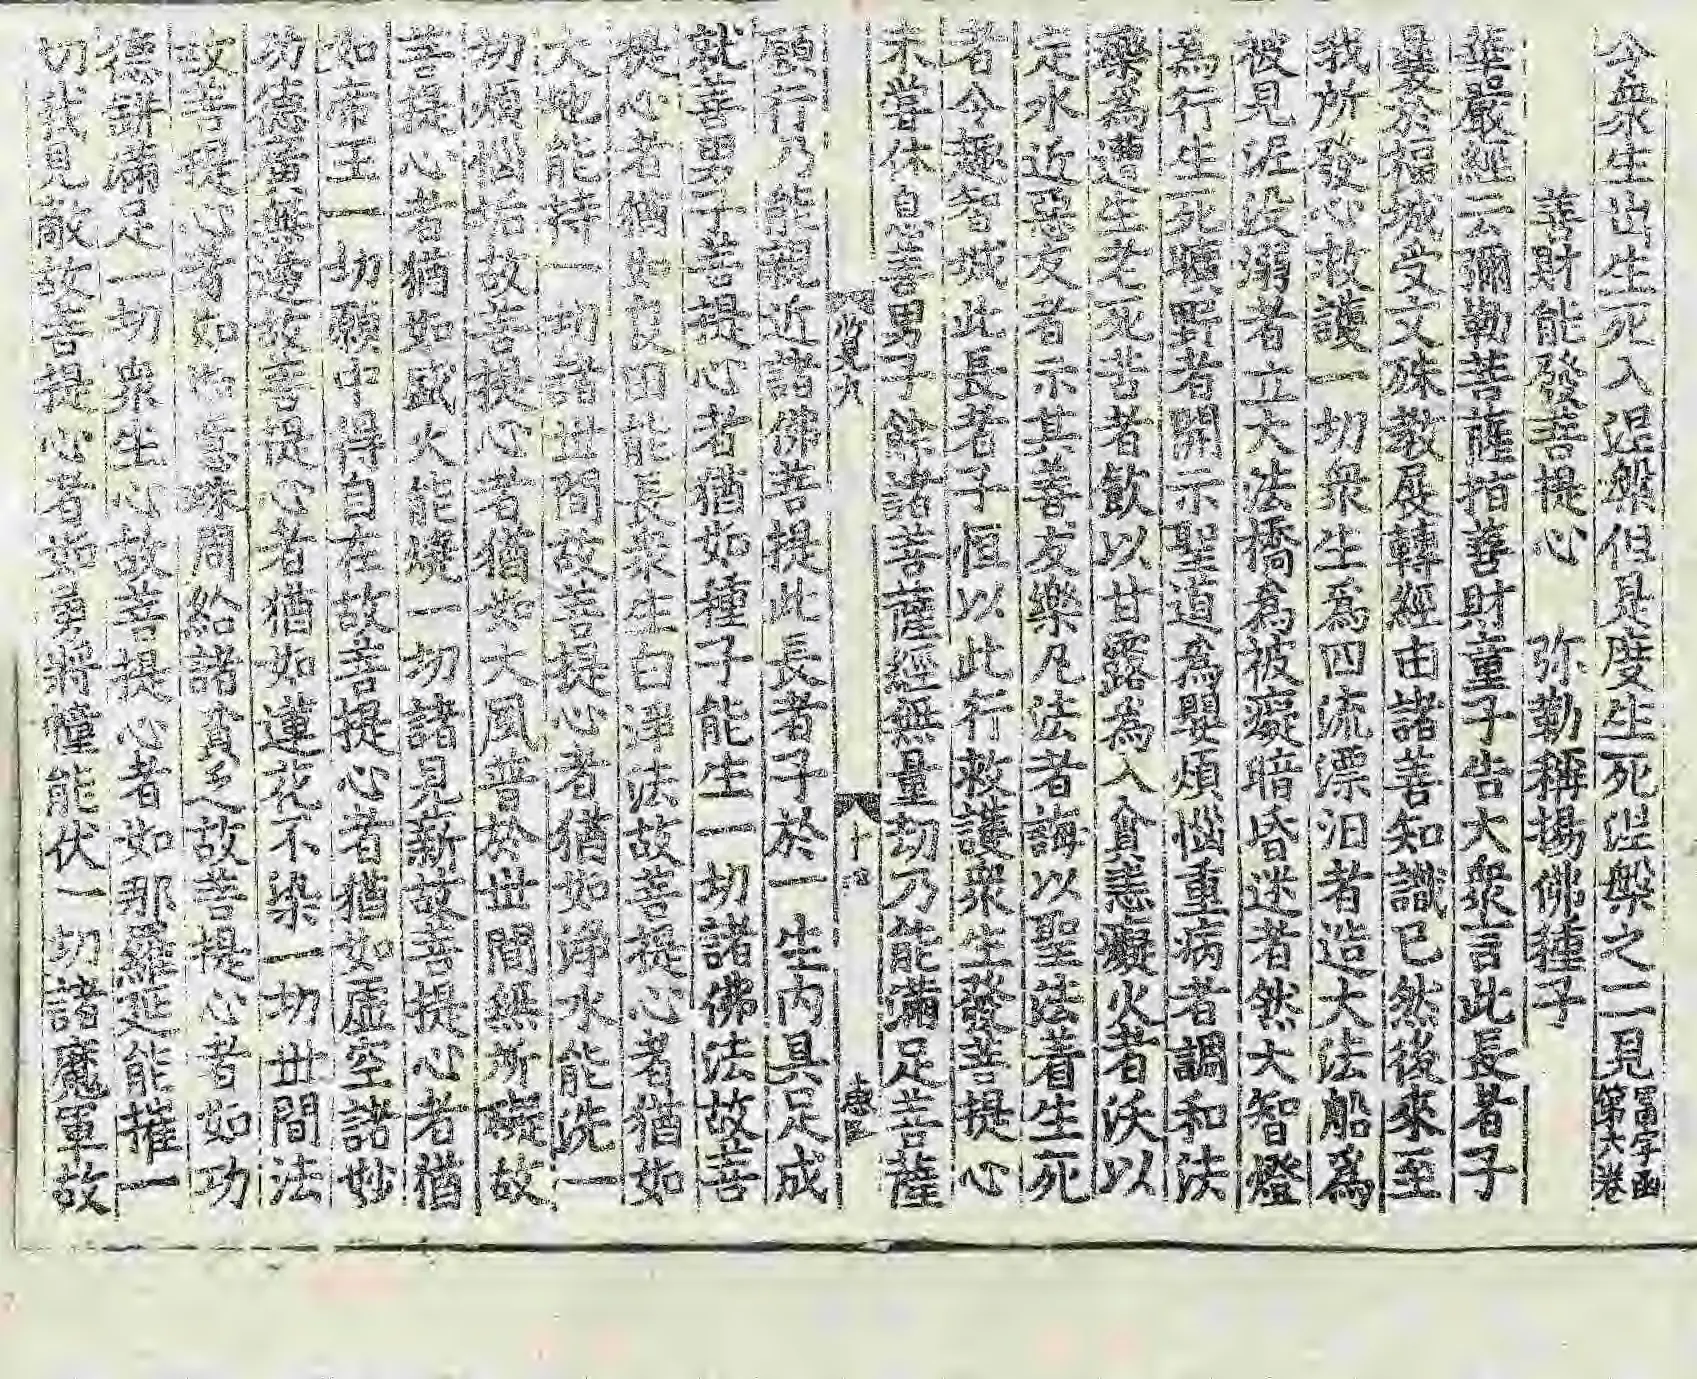 令衆生出生死入涅槃但是度生死涅槃之二見 第六卷
善財能發菩提心 弥勒稱揚佛種子
華嚴經云彌勒菩薩指善財童子告大衆言此長者子
曩於福城受文殊教展轉經由諸善知識已然後來至
我所發心救護一切衆生爲四流漂汨者造大法船爲
被見泥没溺者立大法橋爲被癡暗昏迷者然大智燈
為行生死曠野者開示聖道為嬰煩惱重病者調和法
藥為遭生老死苦者飲以甘露為入貪恚癡火者沃以
定水近惡友者示其善友樂凡法者誨以聖法着生死
者令趣智城此長者子恒以此行救護衆生發菩提心
未嘗休息善男子餘諸菩薩經無量劫乃能滿足菩薩
十四
願行乃能親近諸佛菩提此長者子於一生内具足成
就善男子菩提心者猶如種子能生一切諸佛法故菩
提心者猶如良田能長衆生白淨法故菩提心者猶如
大地能持一切諸世間故菩提心者猶如淨水能洗一
切煩惱垢故菩提心者猶如大風普於世間無所礙故
菩提心者猶如盛火能燒一切諸見薪故菩提心者猶
如帝王一切願中得自在故菩提心者猶如虛空諸妙
功德廣無邊故菩提心者猶如蓮花不染一切世間法
故菩提心者如如意珠周給諸貧乏故菩提心者如功
德缾滿足一切衆生心故菩提心者如那羅延能摧一
切我見敵故善提心者如勇將幢能伏一切諸魔軍故